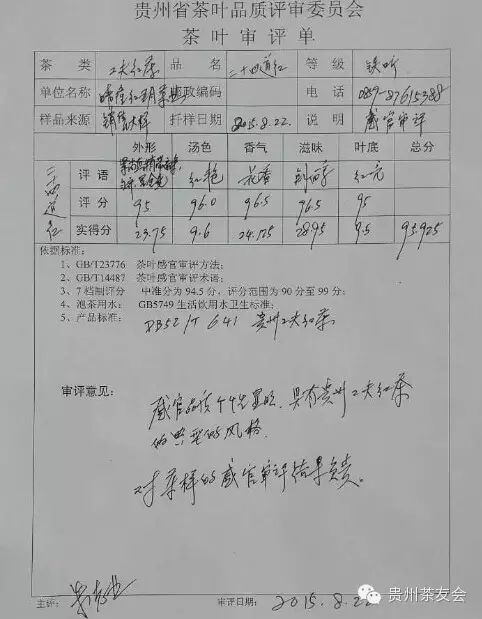 贵州省茶叶品质评审委员会
茶叶审评单
茶 类 工夫红茶 品 名 二十四道红 等 级 铁听
单位名称 晴隆红 茶业 邮政编码 电 话 0859-87615388
样品来源 销售大样 扦样日期 2015.8.22. 说 明 感官审评
外形 汤色 香气 滋味 叶底 总分
二十四道红
评 语 红艳 花香 鲜醇 红亮
评 分 95 96.0 96.5 96.5 95
实得分 23.75 9.6 24.125 28.95 9.5 95.925
依据标准:
1、GB/T23776 茶叶感官审评方法;
2、GB/T14487 茶叶感官审评术语;
3、7档制评分 中准分为94.5分,评分范围为90分至99分;
4、泡茶用水: GB5749生活饮用水卫生标准;
5、产品标准: DB52/T 641 贵州工夫红茶
审评意见:
感官品质 具有贵州工夫红茶
的典型的风格.
对茶样的感官审评结果负责.
主评:
审评日期: 2015.8.22
贵州茶友会